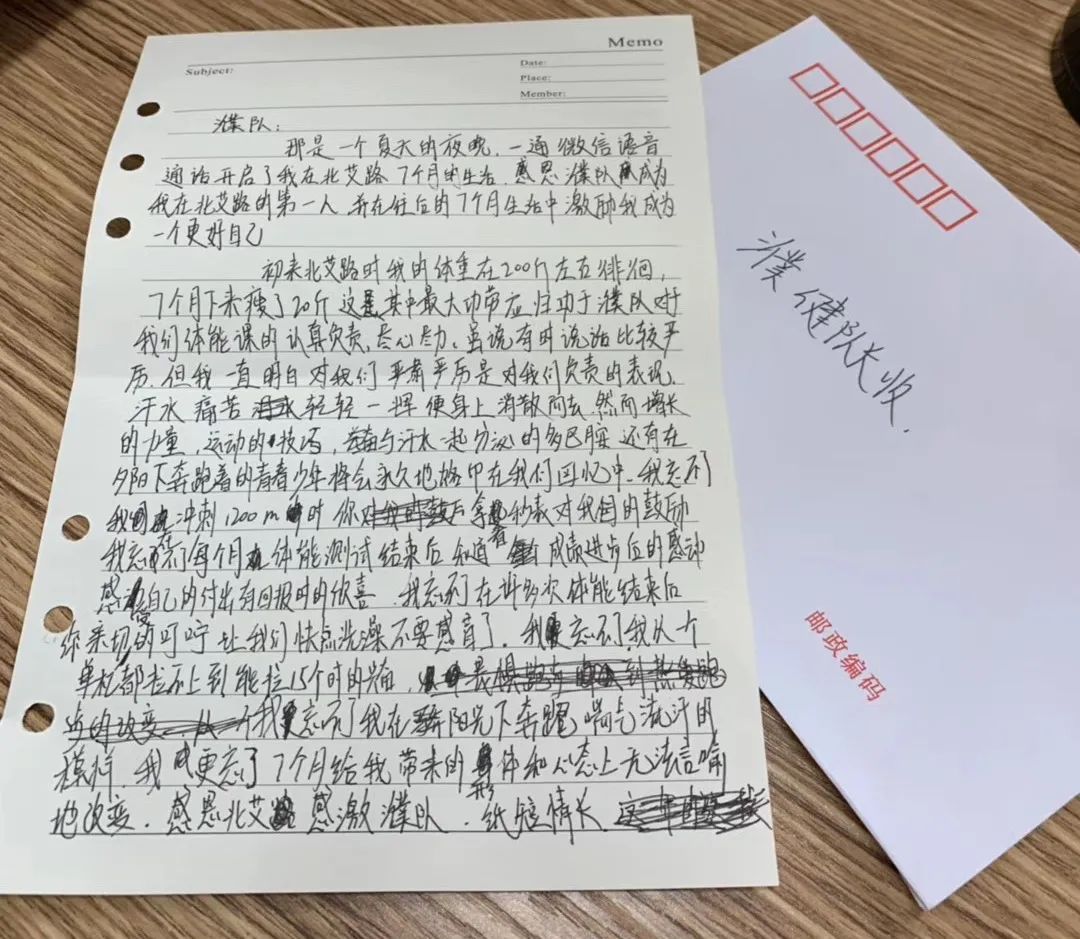 Memo
Subject:
Date:
Place:
Member:
濮队:
那是一个夏天的夜晚,一通微信语音
通话开启了我在北艾路7个月的生活,感恩濮队成为
我在北艾路的第一人,并在往后的7个月生活中激励我成为
一个更好自己
初来北艾路时我的体重在200斤左右徘徊,
7个月下来瘦了20斤这是其中最大功带应归功于濮队对
我们体能课的认真负责,尽心尽力,虽说有时说话比较严
厉,但我一直明白对我们严肃严厉是对我们负责的表现,
汗水痛苦轻轻一挥便身上消散而去,然而增长
的力量,运动的技巧,与汗水一起分泌的多巴胺还有在
夕阳下奔跑着的青春少年将会永久地烙印在我们回忆中,我忘不了
我冲刺1200m时你拿着秒表对我们的鼓励
我忘不了每个月体能测试结束后知道成绩进步后的感动
感受自己的付出有回报时的欣喜,我忘不了在许多次体能结束后
你亲切的叮咛让我们快点洗澡不要感冒了,我忘不了我从个
单杠都拉不上到能拉15个时的兴奋,
我忘不了我在阳光下奔跑,喘气流汗的
模样,我更忘了7个月给我带来的形体和心态上无法言喻
地改变,感恩北艾路感激濮队,纸短情长,
濮健队长收
邮政编码